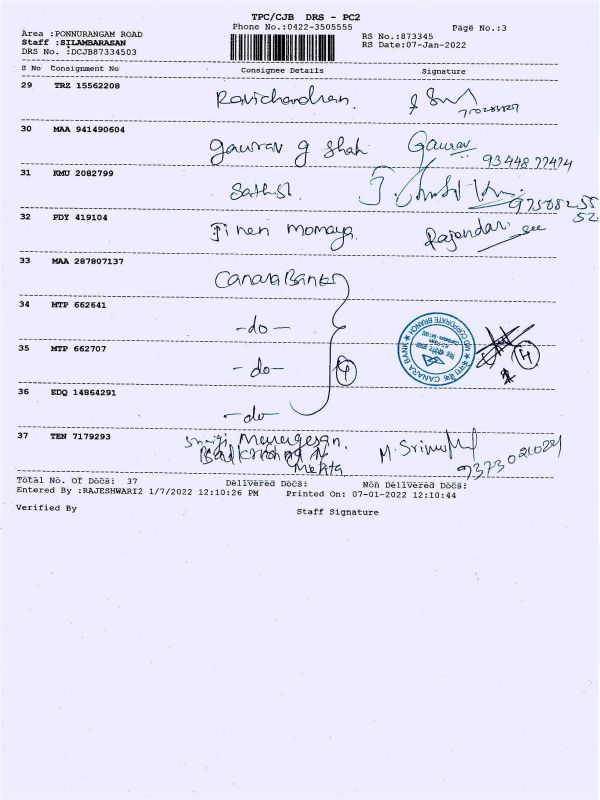 TPC/CJB DRS - PC2
Phone No.:0422-3505555 Page No.:3
Area :PONNURANGAM ROAD
Staff :SILAMBARASAN
DRS No. :DCJB87334503
RS No.:873345
RS Date:07-Jan-2022
S No Consignment No Consignee Details Signature
29 TRZ 15562208 Ravichandran
30 MAA 941490604 Gaurav g shah Gaurav
93448 77474
31 KMU 2082799
32 PDY 419104 Jinen momaya Rajendar
33 MAA 287807137 Canara Bank
34 MTP 662641 -do-
35 MTP 662707 -do- 4
36 EDQ 14864291 -do-
CANARA BANK
CORPORATE BRANCH
4
37 TEN 7179293
Mehta
Total No. Of Docs: 37 Delivered Docs: Non Delivered Docs:
Entered By :RAJESHWARI2 1/7/2022 12:10:26 PM Printed On: 07-01-2022 12:10:44
Verified By Staff Signature